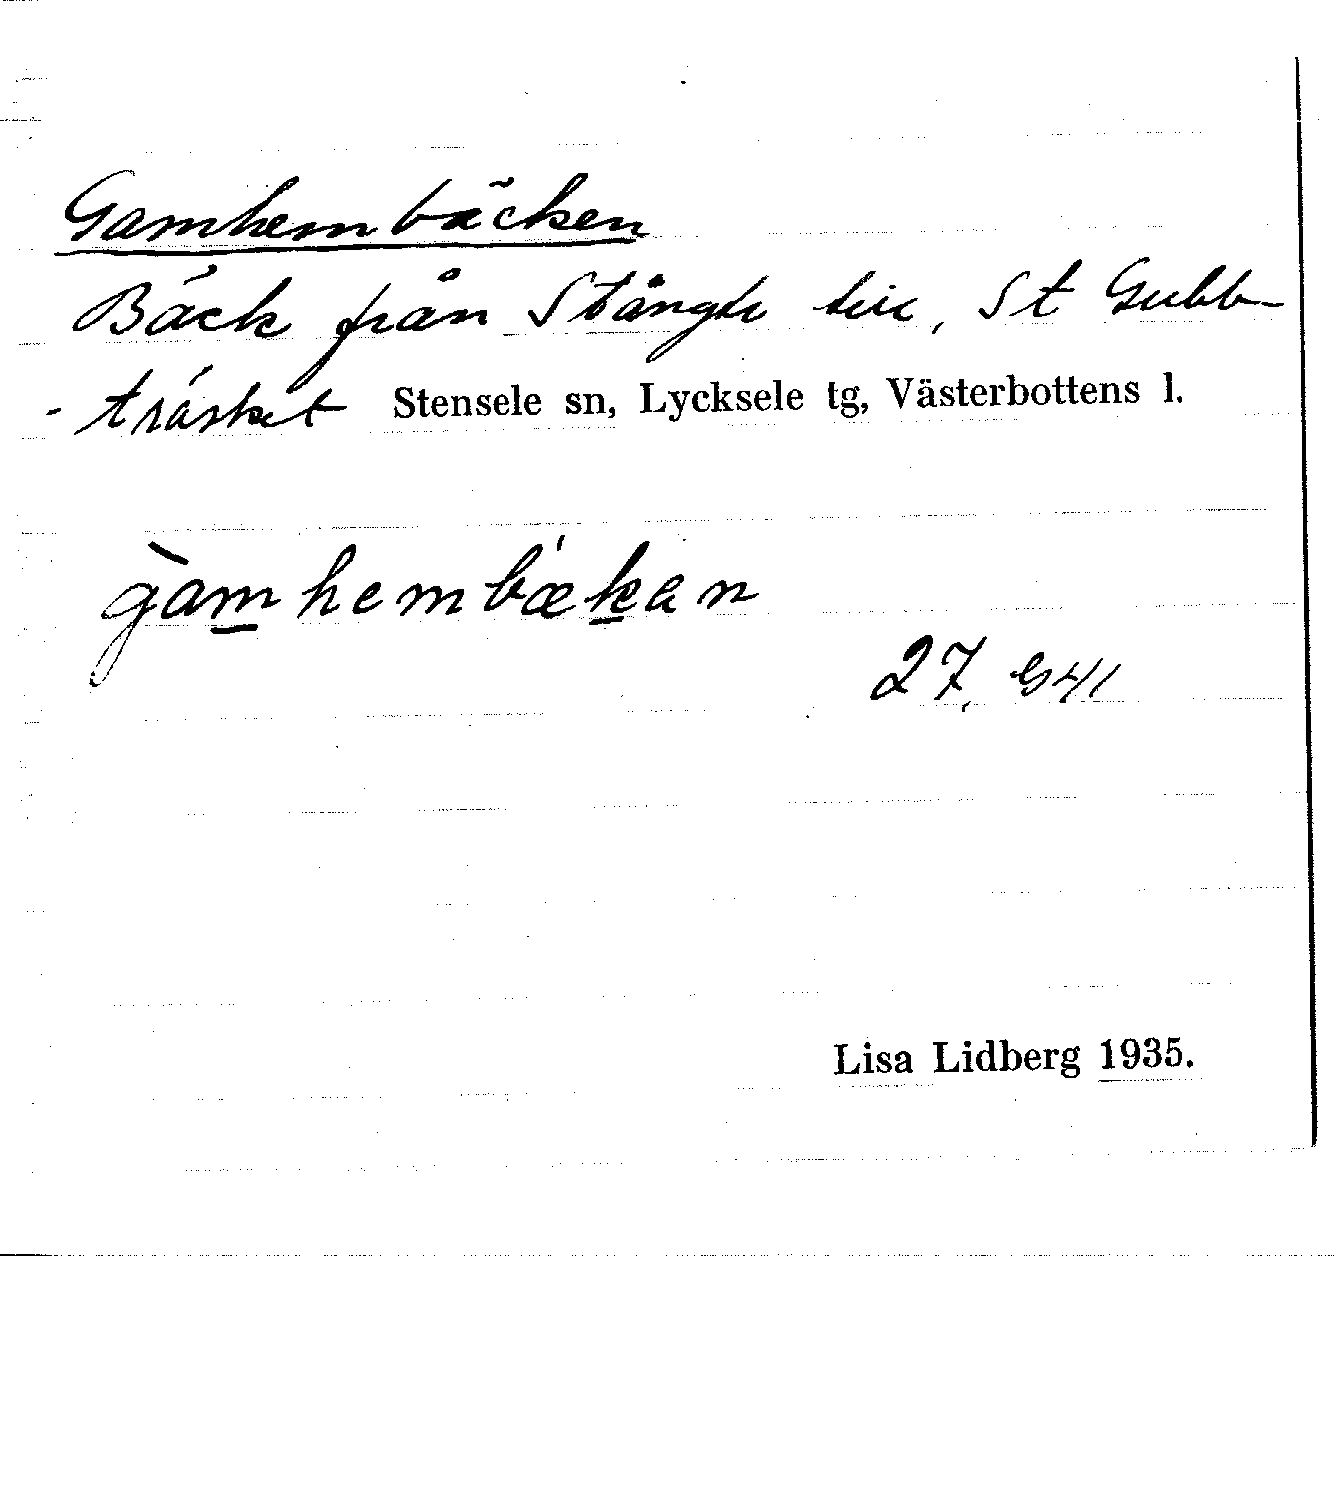 Gamhembäcken
Bäck från Stångtj till, St Gubb-
-träsket Stensele sn, Lycksele tg, Västerbottens l.
gàmhembækan
27, G41
Lisa Lidberg 1935.